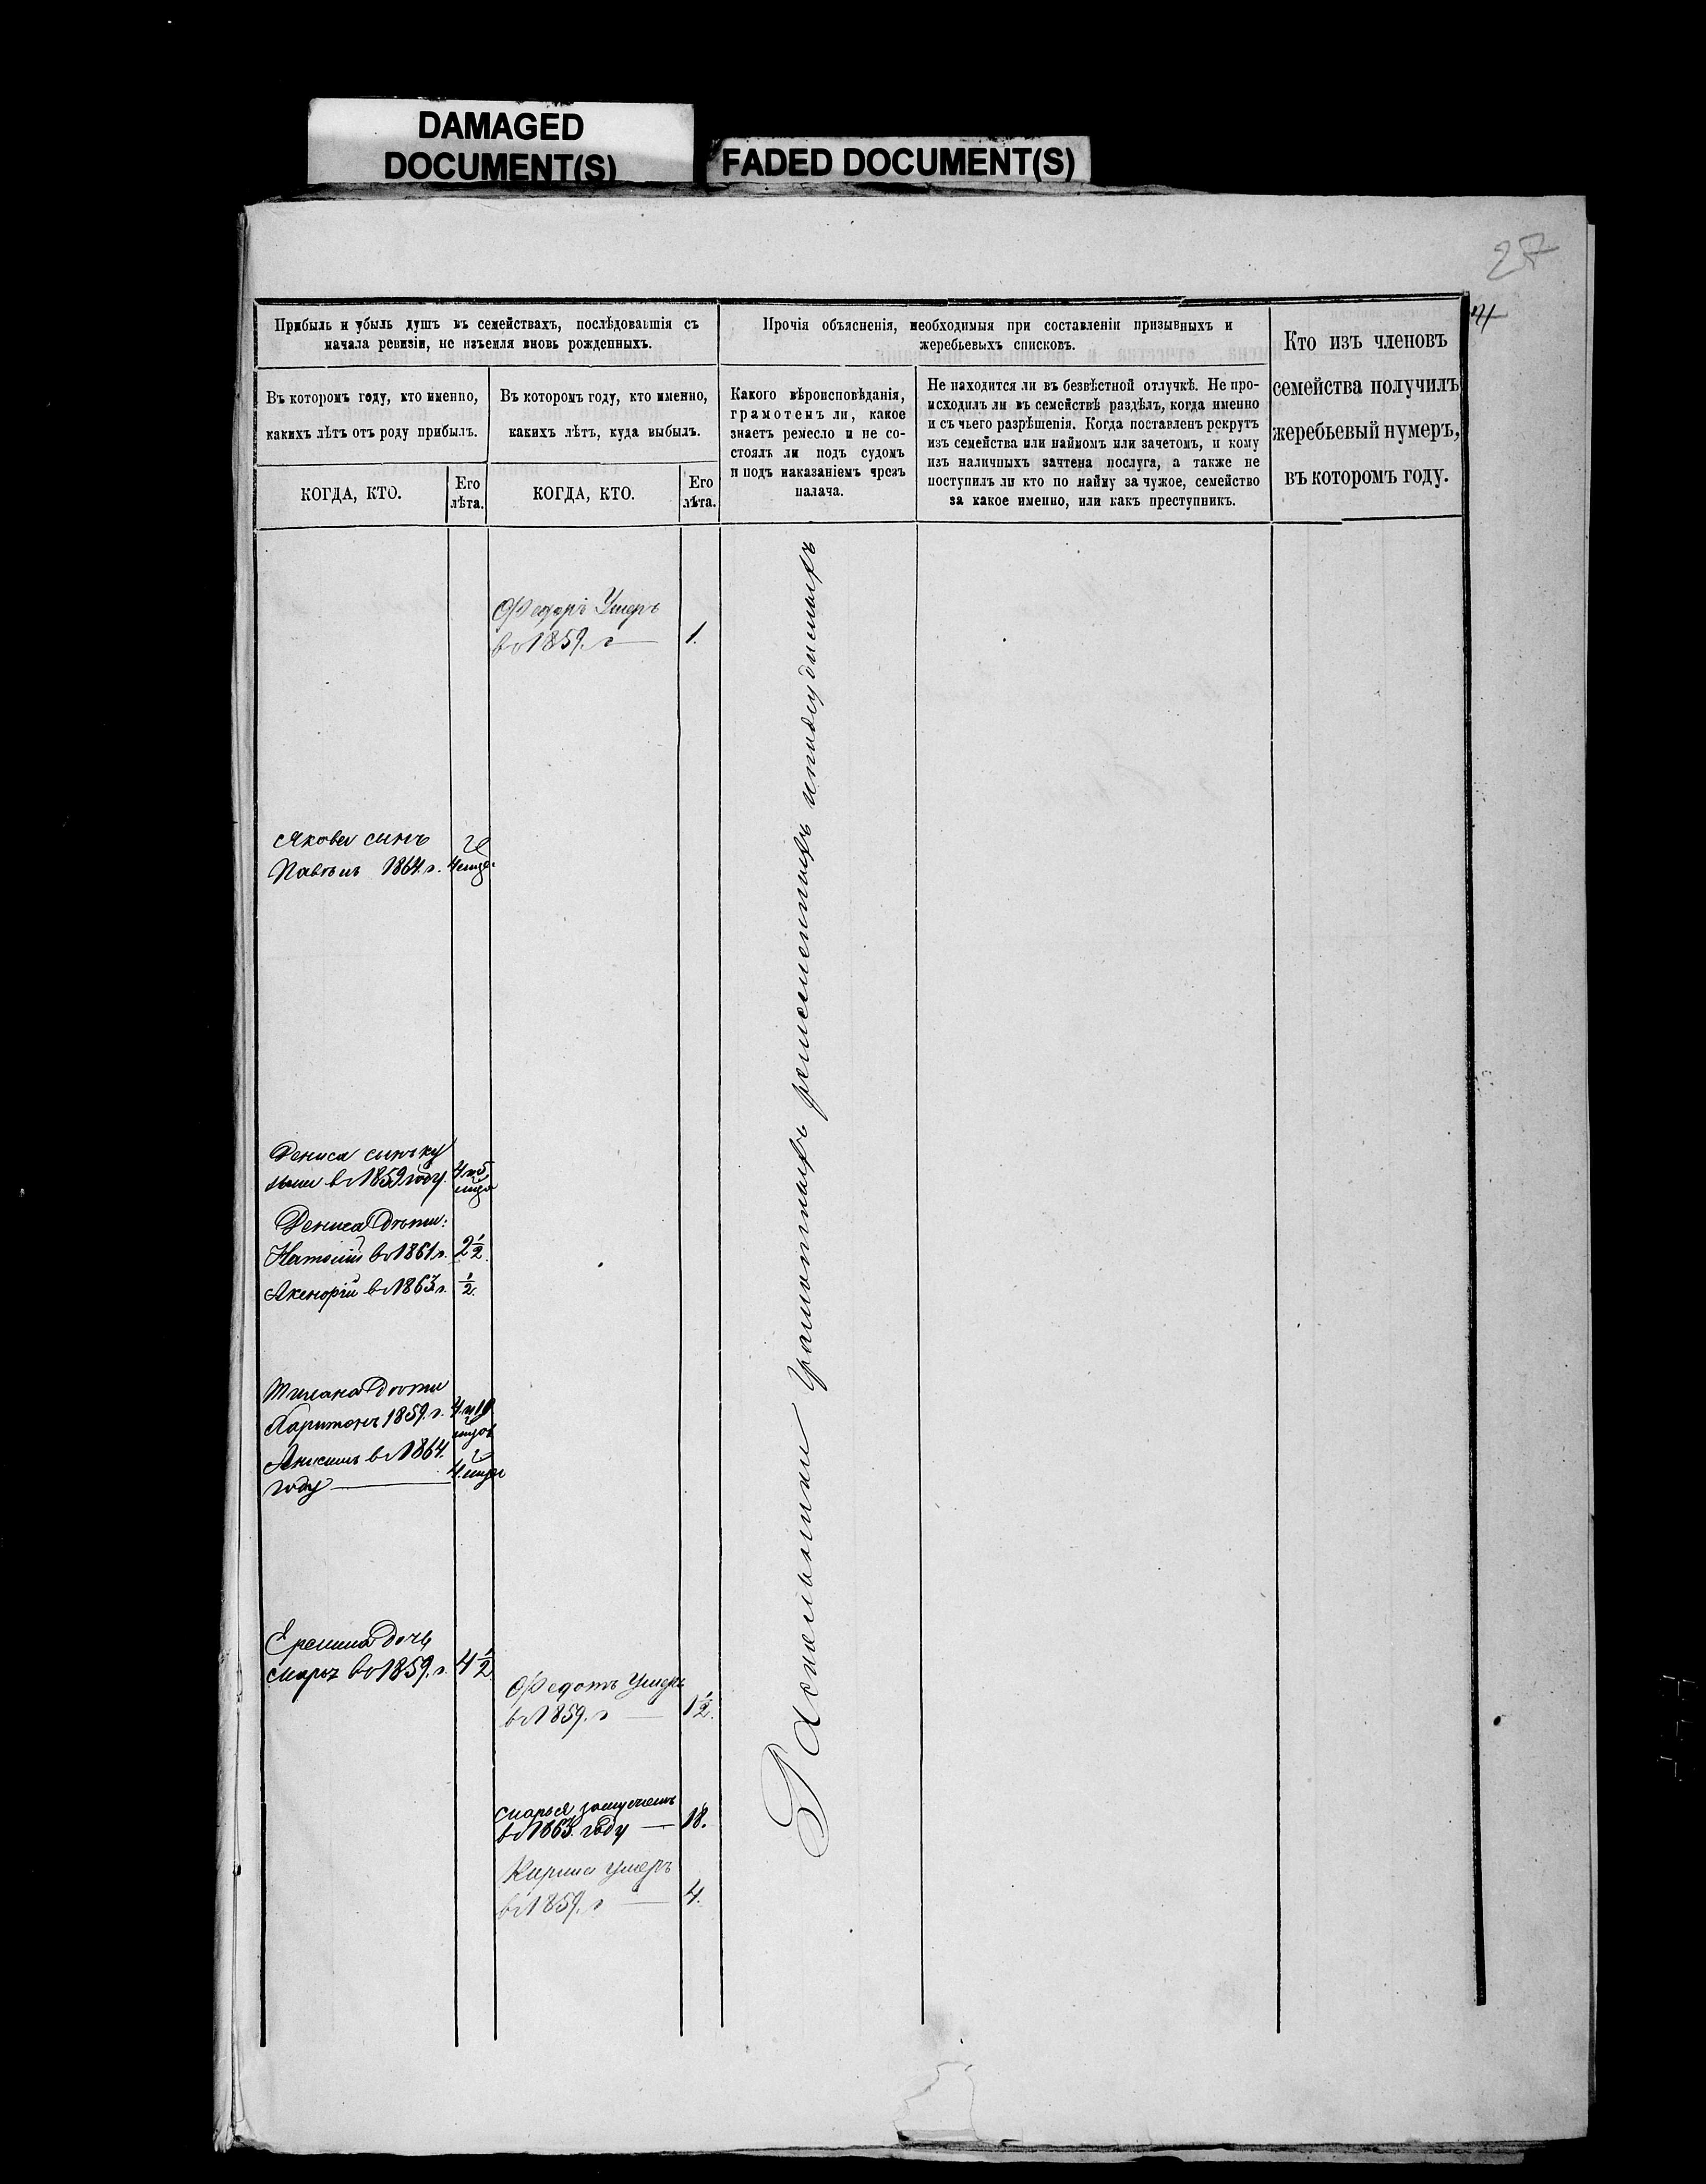 DAMAGED
DOCUMENT(S)
FADED DOCUMENT(S)
27
Прибыль и убыль душъ въ семействахъ, послѣдовавшія съ
начала ревизіи, не изъемля вновь рожденныхъ.
Въ которомъ году, кто именно,
какихъ лѣтъ отъ роду прибылъ.
КОГДА, КТО.
Его
лѣта.
Въ которомъ году, кто именно,
какихъ лѣтъ, куда выбылъ.
КОГДА, КТО.
Его
лѣта.
Прочія объясненія, необходимыя при составленіи призывныхъ и
жеребьевыхъ списковъ.
Какого вѣроисповѣданія,
грамотенъ ли, какое
знаетъ ремесло и не со-
стоялъ ли подъ судомъ
и подъ наказаніемъ чрезъ
палача.
Не находится ли въ безвѣстной отлучкѣ. Не про-
исходилъ ли въ семействѣ раздѣлъ, когда именно
и съ чьего разрѣшенія. Когда поставленъ рекрутъ
изъ семейства или наймомъ или зачетомъ, и кому
изъ наличныхъ зачтена послуга, а также не
поступилъ ли кто по найму за чужое, семейство
за какое именно, или какъ преступникъ.
Кто изъ членовъ
семейства получилъ
жеребьевый нумеръ,
въ которомъ году.
Федоръ Умеръ
въ 1859. г
1.
Якова сынъ
Павелъ 1864. г.
Дениса сынъ Ку
въ 1859 году.
Дениса Дѣти:
въ 1861 г.
2 1/2
въ 1863 г.
1/2.
Дѣти
Харитонъ 1859. г.
Анисимъ въ 1864.
году
Еремина Дочь
Марья въ 1859. г.
4 1/2
Федотъ Умеръ
въ 1859. г
1 1/2.
Марья замужемъ
въ 1863. году
18.
Карпъ умеръ
въ 1859. г
4.